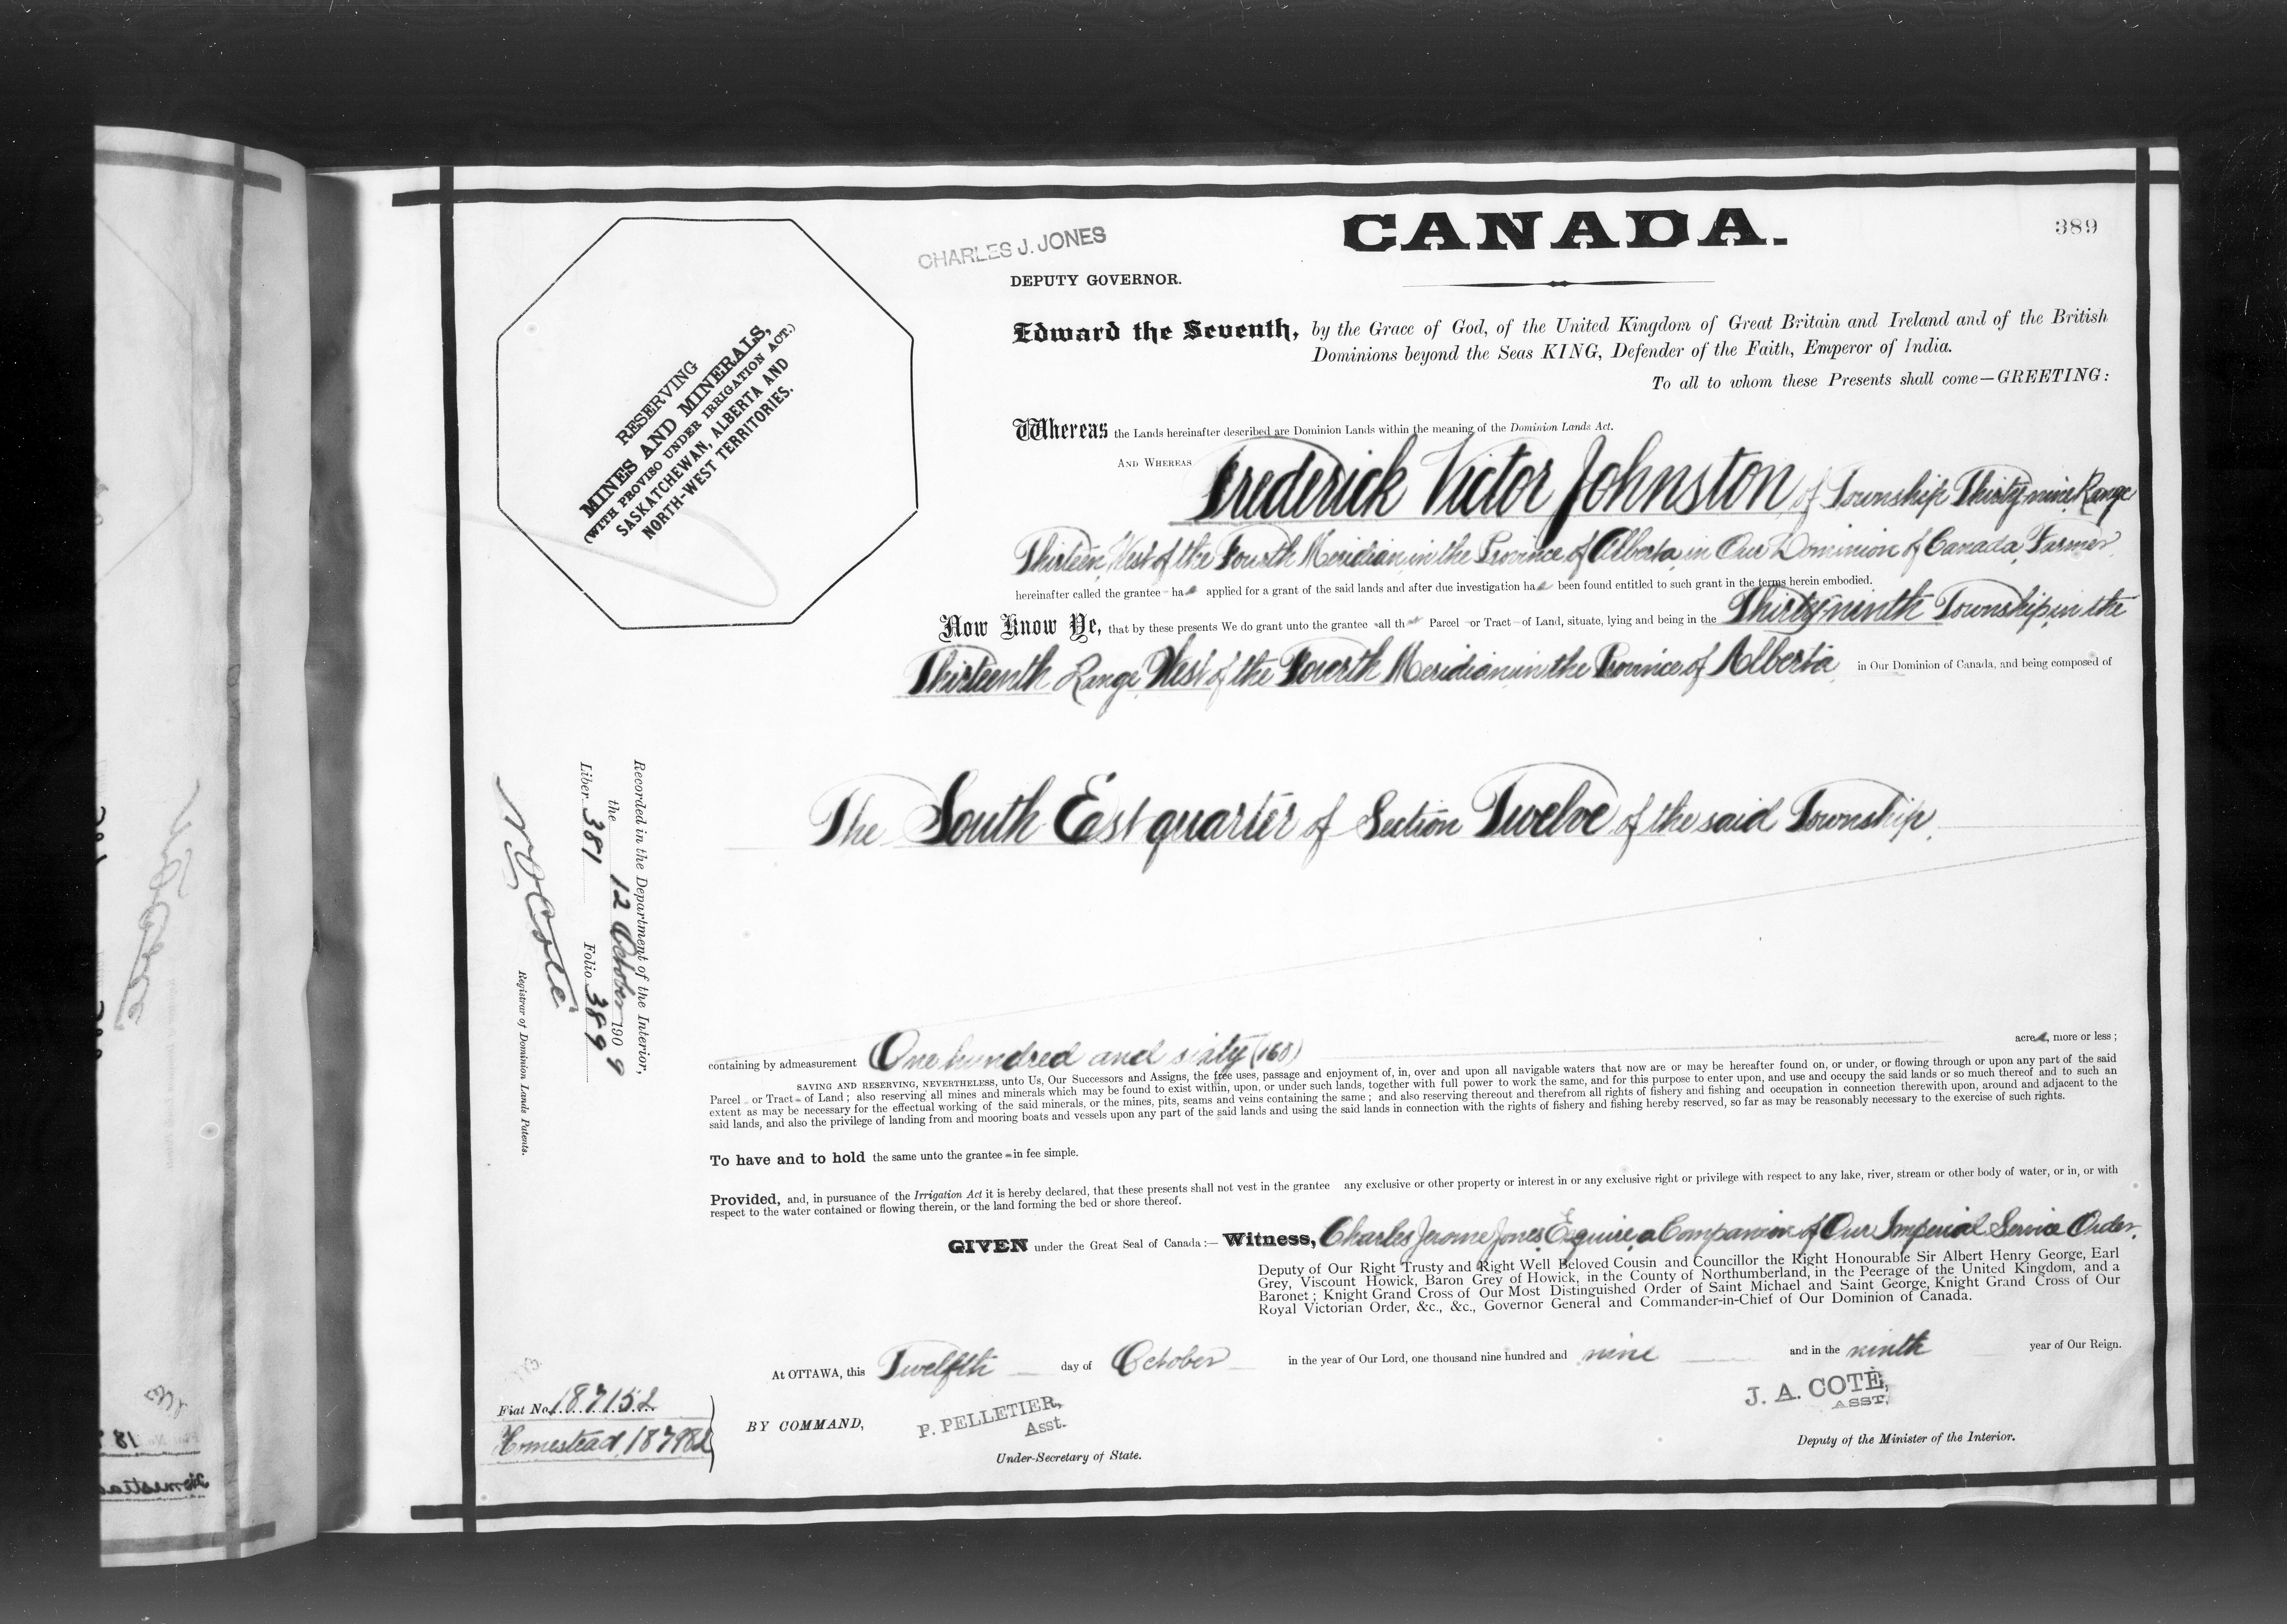 CANADA.
389
CHARLES J. JONES
DEPUTY GOVERNOR.
RESERVING
MINES AND MINERALS,
(WITH PROVISO UNDER IRRIGATION ACT.)
SASKATCHEWAN, ALBERTA AND
NORTH-WEST TERRITORIES.
Edward the Seventh, by the Grace of God, of the United Kingdom of Great Britain and Ireland and of the British
Dominions beyond the Seas KING, Defender of the Faith, Emperor of India.
To all to whom these Presents shall come—GREETING:
Whereas the Lands hereinafter described are Dominion Lands within the meaning of the Dominion Lands Act.
AND WHEREAS Frederick Victor Johnston of Township Thirty-nine Range
Thirteen, West of the Fourth Meridian, in the Province of Alberta, in Our Dominion of Canada, Farmer,
hereinafter called the grantee has applied for a grant of the said lands and after due investigation has been found entitled to such grant in the terms herein embodied.
Now Know Ye, that by these presents We do grant unto the grantee all that Parcel or Tract of Land, situate, lying and being in the Thirty-ninth Township, in the
Thirteenth Range, West of the Fourth Meridian, in the Province of Alberta, in Our Dominion of Canada, and being composed of
The South East quarter of Section Twelve of the said Township,
Recorded in the Department of the Interior,
the 12 October 1909
Liber 381 Folio 389
Registrar of Dominion Lands Patents.
containing by admeasurement One hundred and sixty (160) acres, more or less;
SAVING AND RESERVING, NEVERTHELESS, unto Us, Our Successors and Assigns, the free uses, passage and enjoyment of, in, over and upon all navigable waters that now are or may be hereafter found on, or under, or flowing through or upon any part of the said
Parcel or Tract of Land; also reserving all mines and minerals which may be found to exist within, upon, or under such lands, together with full power to work the same, and for this purpose to enter upon, and use and occupy the said lands or so much thereof and to such an
extent as may be necessary for the effectual working of the said minerals, or the mines, pits, seams and veins containing the same; and also reserving thereout and therefrom all rights of fishery and fishing and occupation in connection therewith upon, around and adjacent to the
said lands, and also the privilege of landing from and mooring boats and vessels upon any part of the said lands and using the said lands in connection with the rights of fishery and fishing hereby reserved, so far as may be reasonably necessary to the exercise of such rights.
To have and to hold the same unto the grantee in fee simple.
Provided, and, in pursuance of the Irrigation Act it is hereby declared, that these presents shall not vest in the grantee any exclusive or other property or interest in or any exclusive right or privilege with respect to any lake, river, stream or other body of water, or in, or with
respect to the water contained or flowing therein, or the land forming the bed or shore thereof.
GIVEN under the Great Seal of Canada:— Witness, Charles Jerome Jones, Esquire, a Companion of Our Imperial Service Order,
Deputy of Our Right Trusty and Right Well Beloved Cousin and Councillor the Right Honourable Sir Albert Henry George, Earl
Grey, Viscount Howick, Baron Grey of Howick, in the County of Northumberland, in the Peerage of the United Kingdom, and a
Baronet; Knight Grand Cross of Our Most Distinguished Order of Saint Michael and Saint George, Knight Grand Cross of Our
Royal Victorian Order, &c., &c., Governor General and Commander-in-Chief of Our Dominion of Canada.
At OTTAWA, this Twelfth day of October in the year of Our Lord, one thousand nine hundred and nine and in the ninth year of Our Reign.
Fiat No. 187152
Homestead
BY COMMAND,
P. PELLETIER,
Asst.
Under-Secretary of State.
J. A. COTÉ,
ASST.
Deputy of the Minister of the Interior.